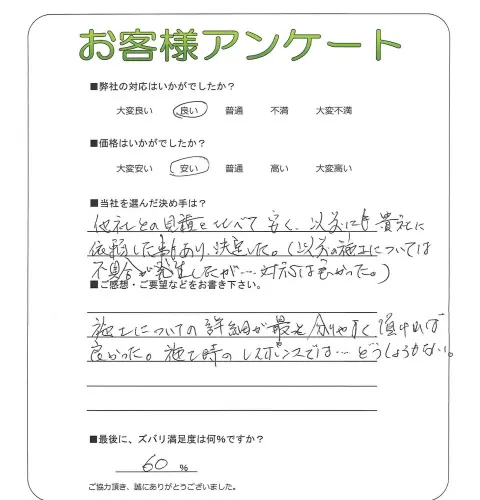 お客様アンケート
■弊社の対応はいかがでしたか？
大変良い 良い 普通 不満 大変不満
■価格はいかがでしたか？
大変安い 安い 普通 高い 大変高い
■当社を選んだ決め手は？
他社との見積と比べて安く、以前にも貴社に
依頼した事あり、決定した。(以前の施工については
不具合が発生したが…対応は良かった。)
■ご感想・ご要望などをお書き下さい。
施工についての詳細が最も分りやすく頂ければ
良かった。施工時のレスポンスでは…どうしようもない。
■最後に、ズバリ満足度は何%ですか？
60 %
ご協力頂き、誠にありがとうございました。